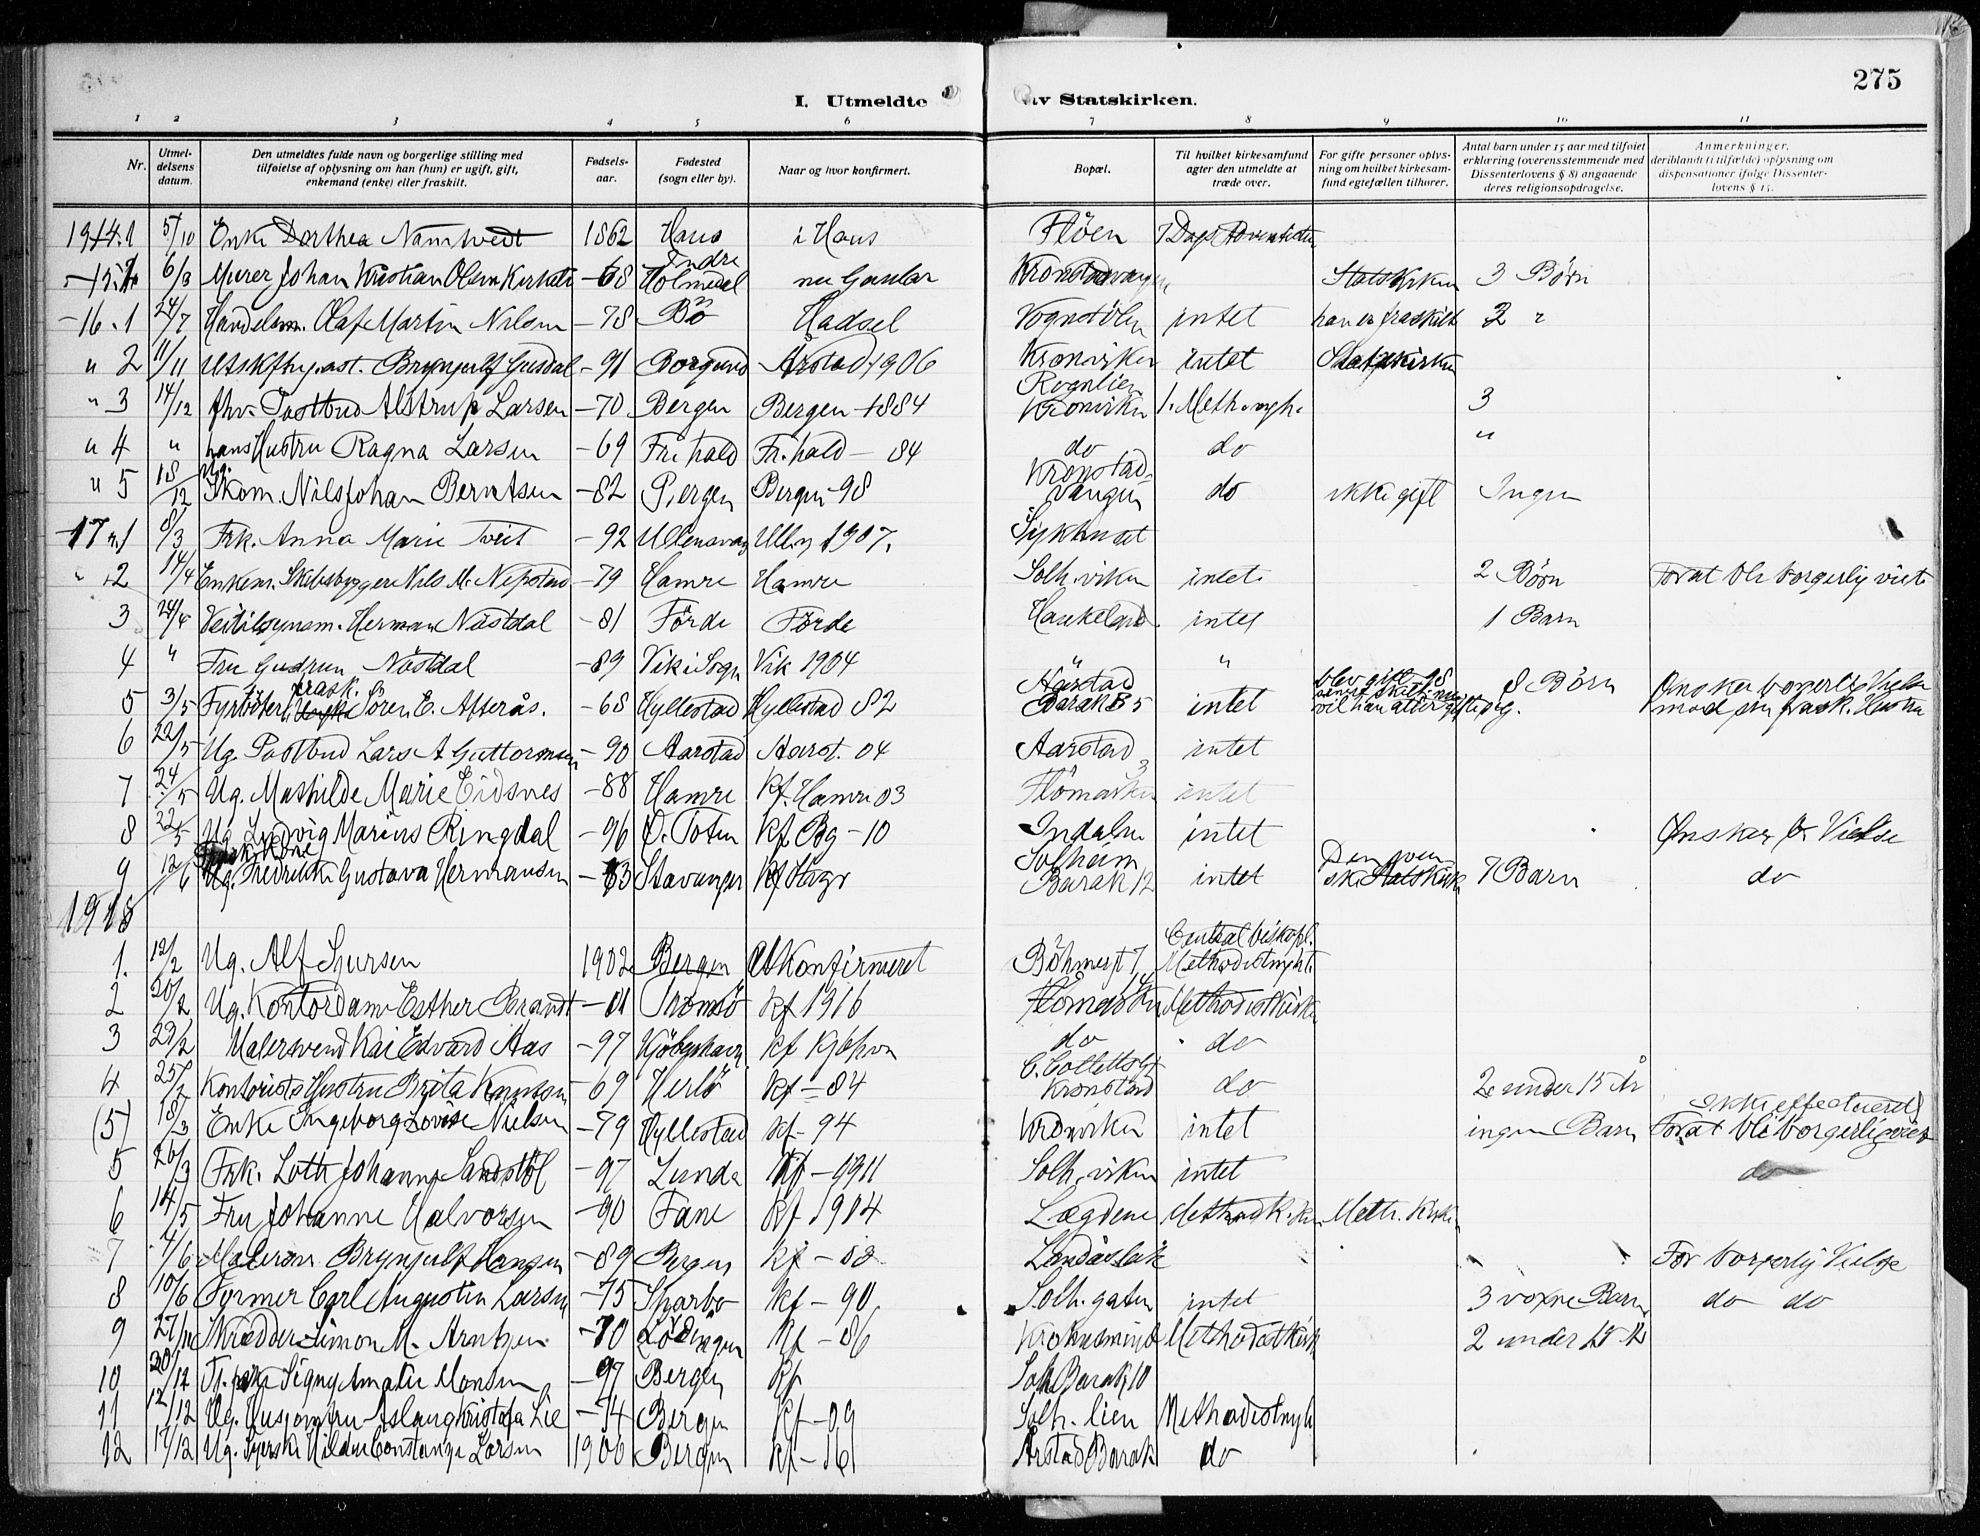 275
I. Utmeldte av Statskirken.
1 2 3 4 5 6 7 8 9 10 11
Nr. | Utmeldelsens datum. | Den utmeldtes fulde navn og borgerlige stilling med tilføielse af oplysning om han (hun) er ugift, gift, enkemand (enke) eller fraskilt. | Fødselsaar. | Fødested (sogn eller by). | Naar og hvor konfirmert. | Bopæl. | Til hvilket kirkesamfund agter den utmeldte at træde over. | For gifte personer oplysning om hvilket kirkesamfund egtefællen tilhører. | Antal barn under 15 aar med tilføiet erklæring (overensstemmende med Dissenterlovens § 8) angaaende deres religionsopdragelse. | Anmerkninger, deriblandt (i tilfælde) oplysning om dispensationer ifølge Dissenterlovens § 15.
1914.1 5/10 Enke Dorthea Namtvedt 1862 Haus i Haus Fløen 7 Dags Adventister
-15. 6/3 Murer Johan Kristian Olsen -68 Indre Holmedal Gaular Kronstadvangen Statskirken 3 Børn
-16.1 24/7 Handelsm. Olaf Martin Nilsen -78 Bø Hadsel Vognstølen intet han er fraskilt 2 "
" 2 11/11 Brynjulf Gusdal -91 Borgund Årstad 1906 Kronviken intet Statskirken
" 3 14/12 fhv. Postbud Alstrup Larsen -70 Bergen Bergen 1884 Kronviken 1. Meth. 3
" 4 " hans Hustru Ragna Larsen -69 Fr.hald Fr.hald - 84 do do "
" 5 18/12 Ug. Skom. Nils Johan Berntsen -82 Bergen Bergen -98 Kronstadvangen do ikke gift Ingen
-17.1 8/3 Frk. Anna Marie Tveit -92 Ullensvang Ull.v 1907. Sykhuset
" 2 14/4 Enkem. Skibsbygger Nils M. Nepstad -79 Hamre Hamre Solh.viken intet 2 Børn For at bli borgerlig viet
3 24/4 Herman Nästdal -81 Förde Förde Haukeland intet 1 Barn
4 " Fru Gudrun Nästdal -89 Vik i Sogn Vik 1904 " "
5 3/5 Fyrbøter frask. Sören E. Afterås. -68 Hyllestad Hyllestad 82 Årstad Barak B 5 intet blev gift 98 vil han atter gifte sig. 8 Børn Ønsker borgerlig Vielse med sin frask. Hustru
6 22/5 Ug. Postbud Lars A Guttormsen -90 Aarstad Aarst. 04 Aarstad intet
7 24/5 Ug. Mathilde Marie Eidsnes -88 Hamre kf. Hamre 03 Flømarken intet
8 22/5 Ug. Ludvig Marius Ringdal -96 Ø. Toten kf Bg -10 Indalen intet Ønsker b. Vielse
9 12/6 Ug. Fredrikke Gustava Hermansen -83 Stavanger kf Stvgr Solheim Barak 12 intet Den svenske Statskirke 7 Barn do
1918
1. 12/2 Ug. Alf Sjursen 1902 Bergen Ukonfirmeret Böhmergt 7 Central biskopl. Methodistmght.
2 20/2 Ug. Kontordame Esther Brandt -01 Tromsö kf 1916 Methodistkirken
3 22/2 Malersvend Kai Edvard Aas -97 Kjöbenhavn kf Kjbhvn do do
4 25/2 Kontorists Hustru Brita Knutsen -69 Herlö kf - 84 C. Collettsgt Kronstad do 2 under 15 År
(5) 18/3 Enke Ingeborg Lovise Nielsen -79 Hyllestad kf - 94 Kronviken intet ingen Barn Ikke effectueret) For at bli borgerlig viet
5 26/3 Frk. Loth Johanne Sandstöl -97 Lunde kf - 1911 Solh.viken intet do
6 14/5 Fru Johanne Halvorsen -90 Fane kf 1904 Lægdene Methodistk. Meth. Kirken
7 4/6 Brynjulf Hansen -89 Bergen kf - 03 For borgerlig Vielse
8 10/6 Former Carl Augustin Larsen -75 Sparbo kf - 90 Solh.gaten intet 3 voxne Barn do do
9 27/10 Skrædder Simon M. Arntzen -70 Lödingen kf - 86 Kronusminde Methodistkirk 2 under 15 År
10 20/12 Signy Amalie Monsen -97 Bergen kf Solh Barak 10
11 12/12 Ug. Husjomfru Aslaug Kristofa Lie -74 Bergen kf - 09 Solh.lien Methodistmgh
12 17/12 Ug. Hilda Constanse Larsen 1900 Bergen kf - 16 Årstad Barak do